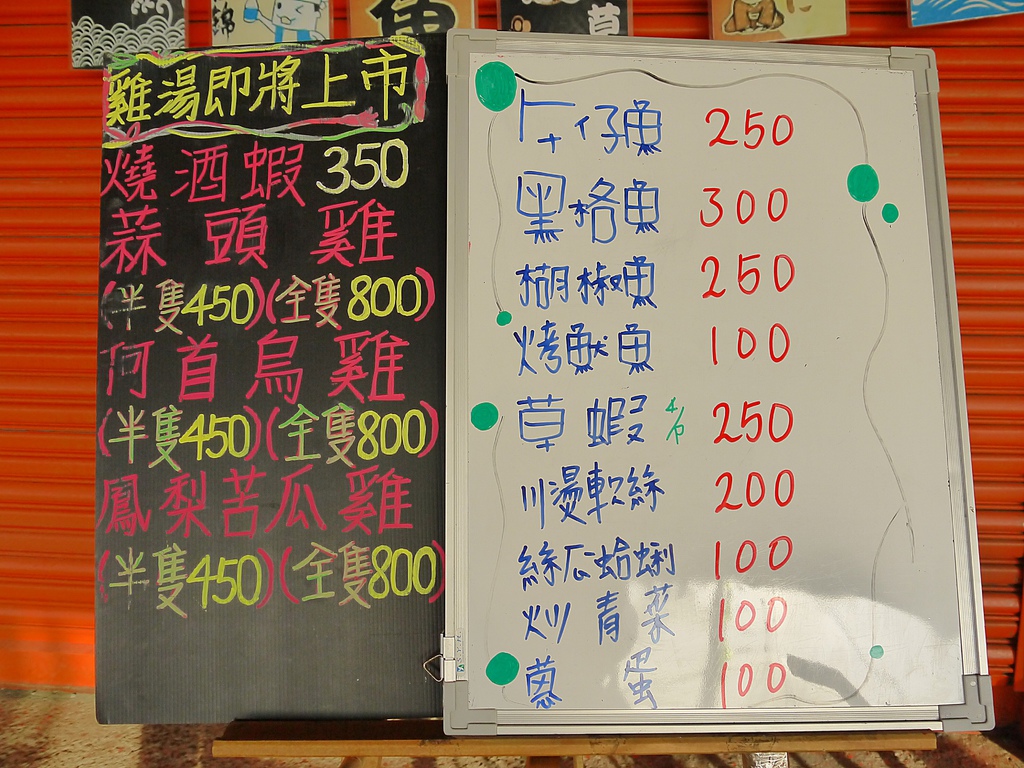 雞湯即將上市
燒酒蝦 350
蒜頭雞
(半隻450)(全隻800)
何首烏雞
(半隻450)(全隻800)
鳳梨苦瓜雞
(半隻450)(全隻800)
仔魚 250
黑格魚 300
糊椒魚 250
烤魚 100
草蝦 250
川燙軟絲 200
絲瓜蛤蜊 100
炒青菜 100
蔥蛋 100